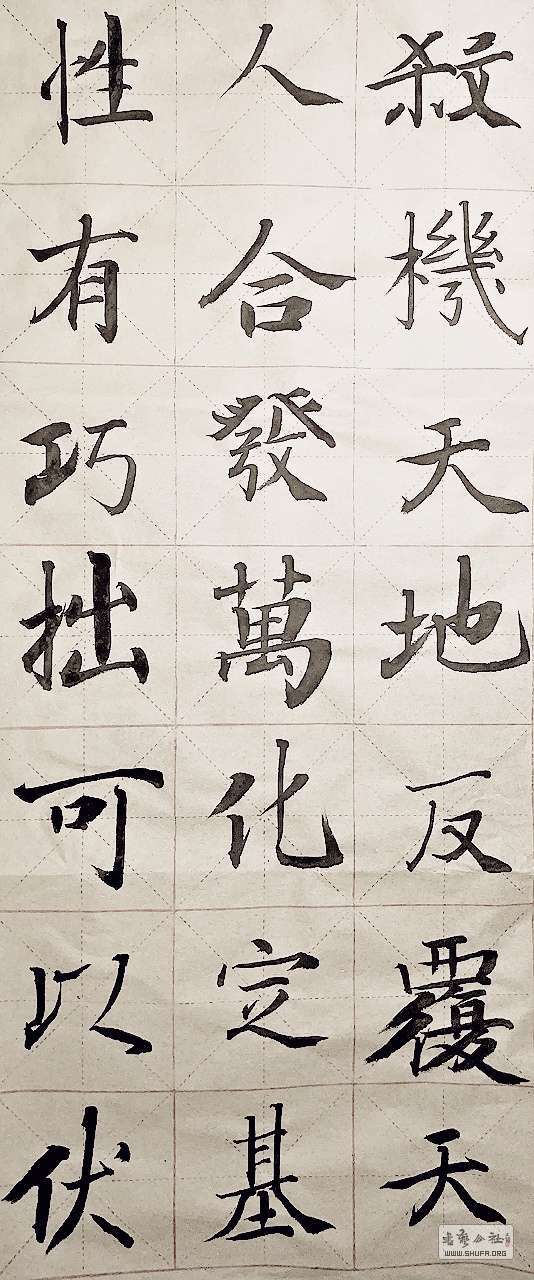 殺機天地反覆天
人合發萬化定基
性有巧拙可以伏
書藝公社
WWW.SHUFA.ORG